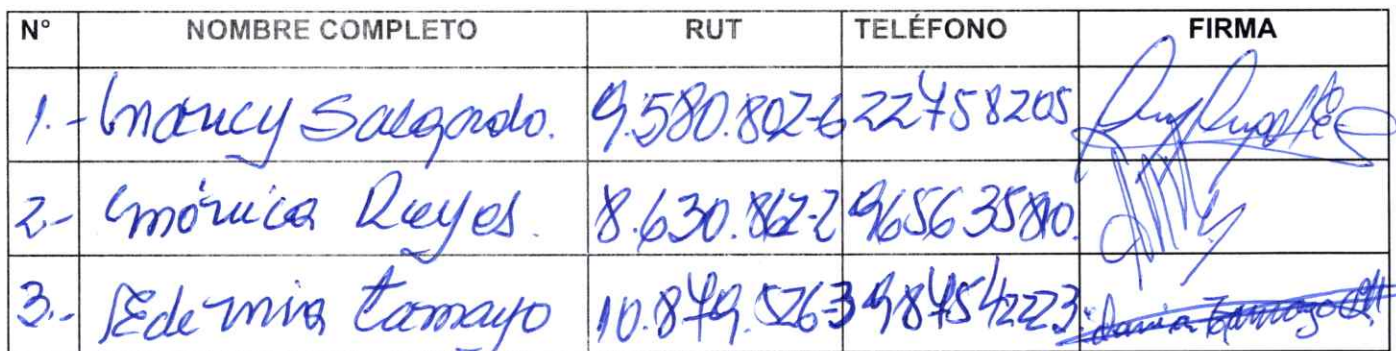 N° NOMBRE COMPLETO RUT TELÉFONO FIRMA
1.- Mancy Salgado. 9.580.802-6 224758205
2.- Mónica Reyes. 8.630.862-2 965635810.
3.- Tamayo 10.879.526-3 987542223